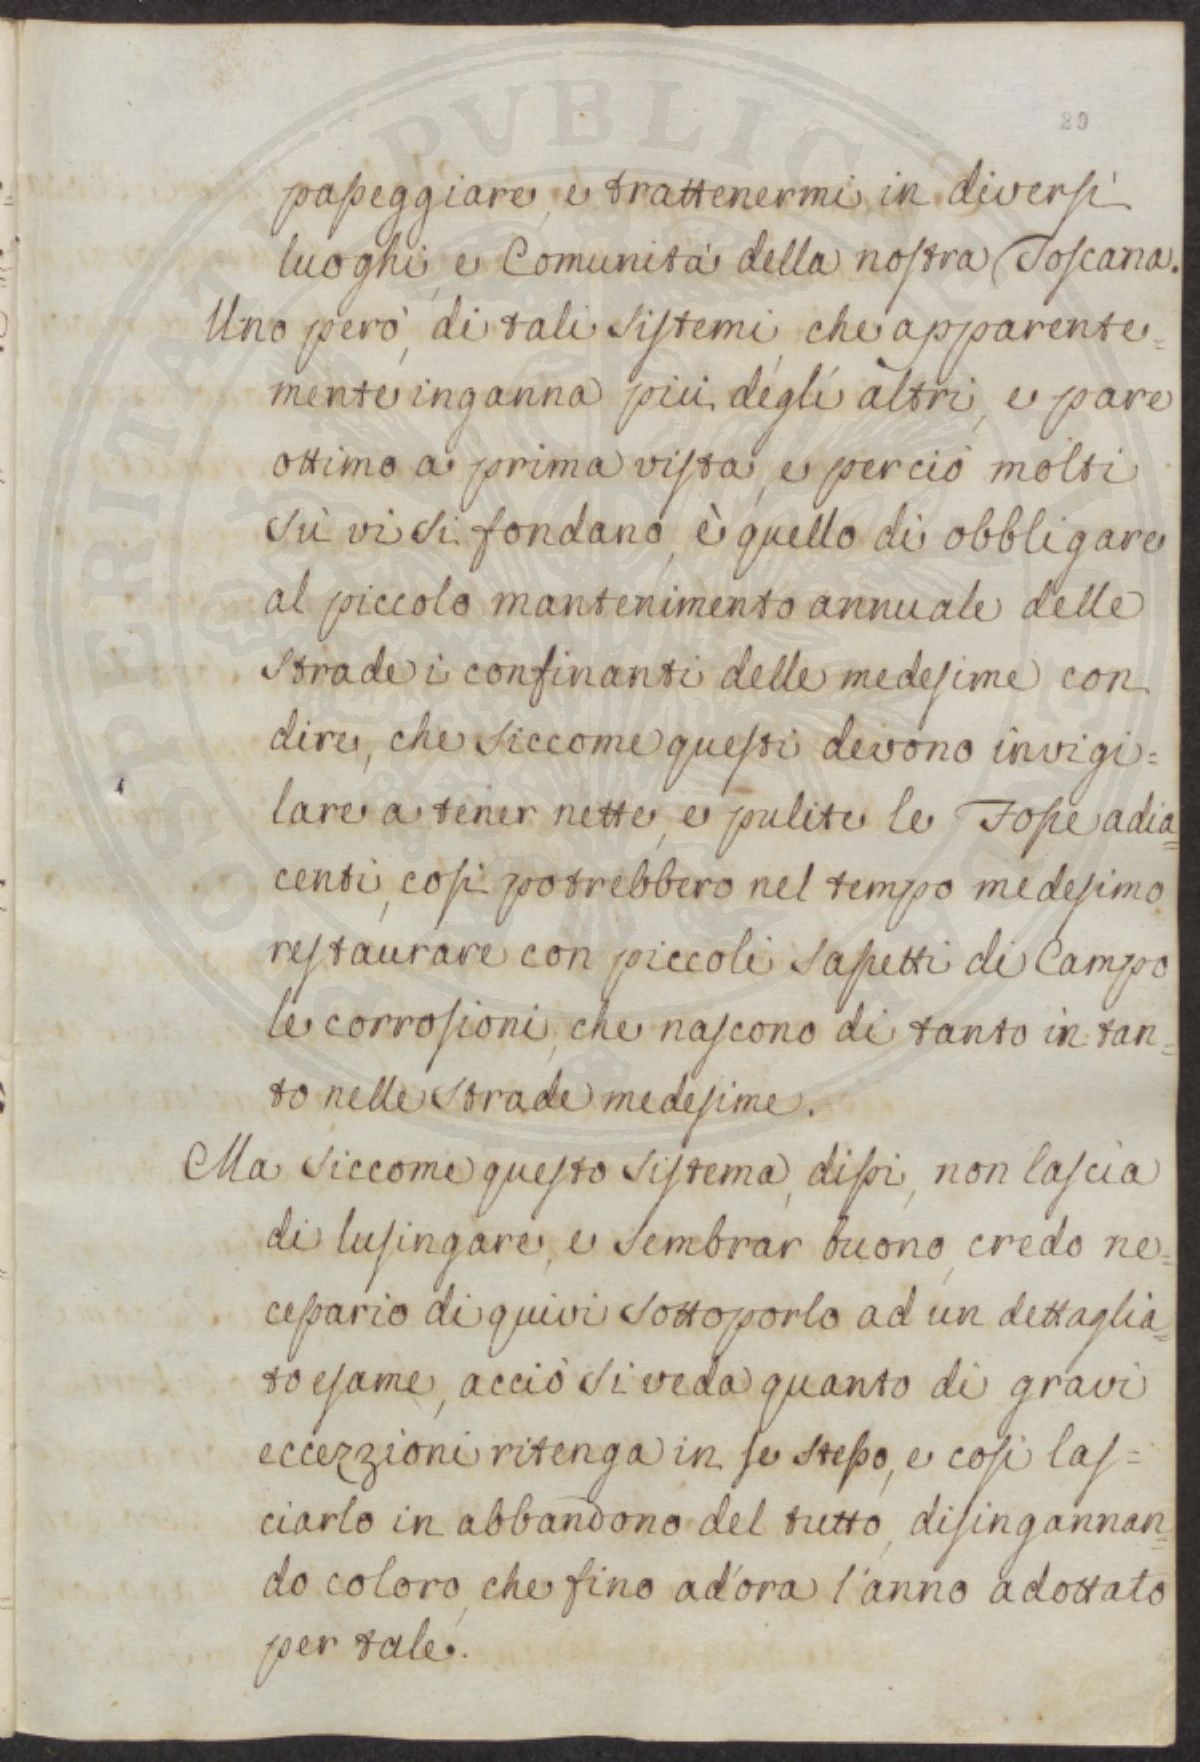 29
passeggiare, e trattenermi in diversi
luoghi, e Comunità della nostra Toscana.
Uno però, di tali sistemi, che apparente=
mente inganna più degli altri, e pare
ottimo a prima vista, e perciò molti
sù vi si fondano, è quello di obbligare
al piccolo mantenimento annuale delle
strade i confinanti delle medesime con
dire, che siccome questi devono invigi=
lare a tener nette, e pulite le Fosse adia=
centi, così potrebbero nel tempo medesimo
restaurare con piccoli sassetti di Campo
le corrosioni, che nascono di tanto in tan=
to nelle strade medesime.
Ma siccome questo sistema, dissi, non lascia
di lusingare, e sembrar buono, credo ne=
cessario di quivi sottoporlo ad un dettaglia=
to esame, acciò si veda quanto di gravi
eccezzioni ritenga in se stesso, e così las=
ciarlo in abbandono del tutto, disingannan=
do coloro, che fino ad'ora l'anno adottato
per tale.